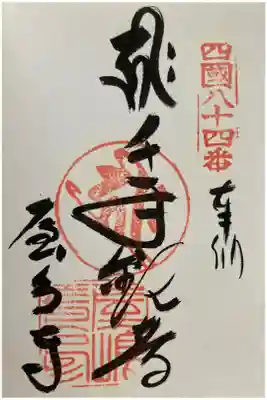 四國八十四番
奉納
千手観音
屋島寺